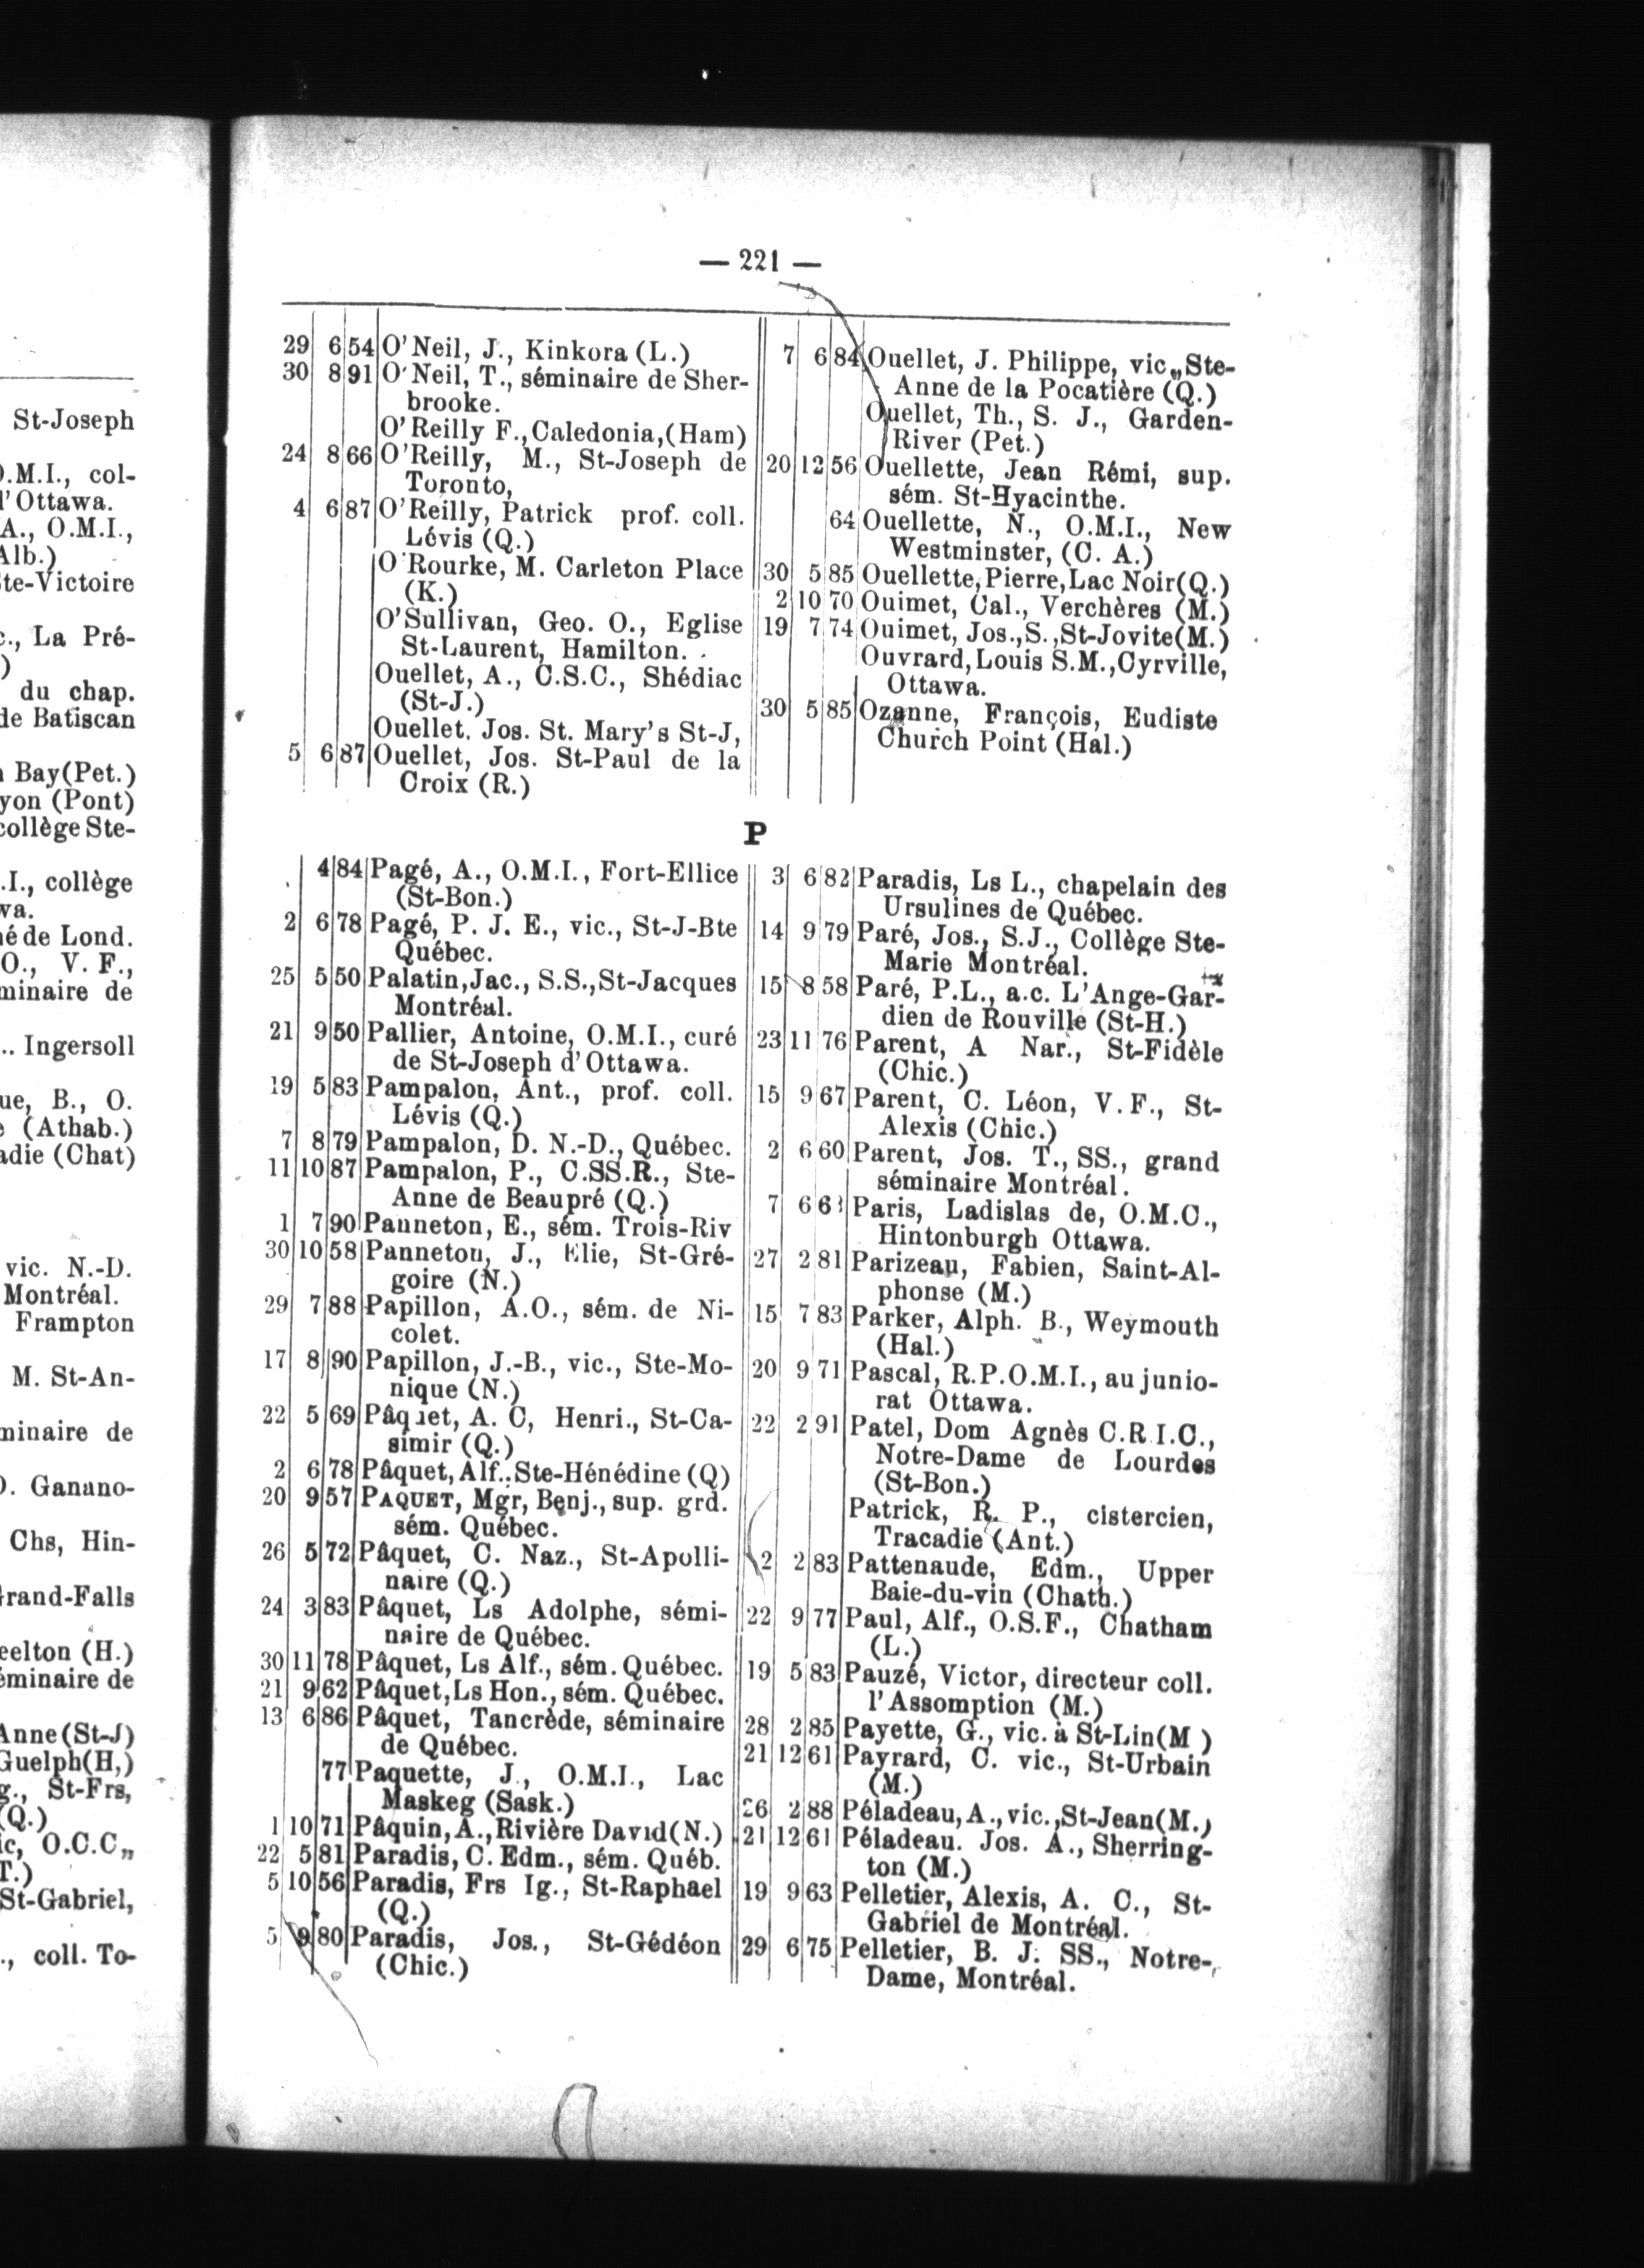 St-Joseph
O.M.I., col-
l'Ottawa.
A., O.M.I.,
Alb.)
Ste-Victoire
La Pré-
)
du chap.
de Batiscan
Bay(Pet.)
yon (Pont)
collège Ste-
.I., collège
va.
né de Lond.
O., V. F.,
minaire de
.. Ingersoll
ue, B., O.
(Athab.)
adie (Chat)
vic. N.-D.
Montréal.
Frampton
M. St-An-
minaire de
O. Ganano-
Chs, Hin-
Grand-Falls
eelton (H.)
éminaire de
Anne (St-J)
Guelph(H,)
g., St-Frs,
(Q.)
ic, O.C.C„
T.)
St-Gabriel,
., coll. To-
— 221 —
29 6 54 O'Neil, J., Kinkora (L.)
30 8 91 O'Neil, T., séminaire de Sher-
brooke.
O'Reilly F.,Caledonia,(Ham)
24 8 66 O'Reilly, M., St-Joseph de
Toronto,
4 6 87 O'Reilly, Patrick prof. coll.
Lévis (Q.)
O'Rourke, M. Carleton Place
(K.)
O'Sullivan, Geo. O., Eglise
St-Laurent, Hamilton.
Ouellet, A., C.S.C., Shédiac
(St-J.)
Ouellet. Jos. St. Mary's St-J,
5 6 87 Ouellet, Jos. St-Paul de la
Croix (R.)
7 6 84 Ouellet, J. Philippe, vic„ Ste-
Anne de la Pocatière (Q.)
Ouellet, Th., S. J., Garden-
River (Pet.)
20 12 56 Ouellette, Jean Rémi, sup.
sém. St-Hyacinthe.
64 Ouellette, N., O.M.I., New
Westminster, (C. A.)
30 5 85 Ouellette, Pierre, Lac Noir(Q.)
2 10 70 Ouimet, Cal., Verchères (M.)
19 7 74 Ouimet, Jos.,S.,St-Jovite(M.)
Ouvrard, Louis S.M.,Cyrville,
Ottawa.
30 5 85 Ozanne, François, Eudiste
Church Point (Hal.)
P
4 84 Pagé, A., O.M.I., Fort-Ellice
(St-Bon.)
2 6 78 Pagé, P. J. E., vic., St-J-Bte
Québec.
25 5 50 Palatin, Jac., S.S.,St-Jacques
Montréal.
21 9 50 Pallier, Antoine, O.M.I., curé
de St-Joseph d'Ottawa.
19 5 83 Pampalon, Ant., prof. coll.
Lévis (Q.)
7 8 79 Pampalon, D. N.-D., Québec.
11 10 87 Pampalon, P., C.SS.R., Ste-
Anne de Beaupré (Q.)
1 7 90 Panneton, E., sém. Trois-Riv
30 10 58 Panneton, J., Elie, St-Gré-
goire (N.)
29 7 88 Papillon, A.O., sém. de Ni-
colet.
17 8 90 Papillon, J.-B., vic., Ste-Mo-
nique (N.)
22 5 69 Pâquet, A. C, Henri., St-Ca-
simir (Q.)
2 6 78 Pâquet, Alf.. Ste-Hénédine (Q)
20 9 57 PAQUET, Mgr, Benj., sup. grd.
sém. Québec.
26 5 72 Pâquet, C. Naz., St-Apolli-
naire (Q.)
24 3 83 Pâquet, Ls Adolphe, sémi-
naire de Québec.
30 11 78 Pâquet, Ls Alf., sém. Québec.
21 9 62 Pâquet, Ls Hon., sém. Québec.
13 6 86 Pâquet, Tancrède, séminaire
de Québec.
77 Paquette, J., O.M.I., Lac
Maskeg (Sask.)
1 10 71 Pâquin, A., Rivière David(N.)
22 5 81 Paradis, C. Edm., sém. Québ.
5 10 56 Paradis, Frs Ig., St-Raphael
(Q.)
5 9 80 Paradis, Jos., St-Gédéon
(Chic.)
3 6 82 Paradis, Ls L., chapelain des
Ursulines de Québec.
14 9 79 Paré, Jos., S.J., Collège Ste-
Marie Montréal.
15 8 58 Paré, P.L., a.c. L'Ange-Gar-
dien de Rouville (St-H.)
23 11 76 Parent, A Nar., St-Fidèle
(Chic.)
15 9 67 Parent, C. Léon, V. F., St-
Alexis (Chic.)
2 6 60 Parent, Jos. T., SS., grand
séminaire Montréal.
7 6 Paris, Ladislas de, O.M.C.,
Hintonburgh Ottawa.
27 2 81 Parizeau, Fabien, Saint-Al-
phonse (M.)
15 7 83 Parker, Alph. B., Weymouth
(Hal.)
20 9 71 Pascal, R.P.O.M.I., au junio-
rat Ottawa.
22 2 91 Patel, Dom Agnès C.R.I.C.,
Notre-Dame de Lourdes
(St-Bon.)
Patrick, R. P., cistercien,
Tracadie (Ant.)
2 2 83 Pattenaude, Edm., Upper
Baie-du-vin (Chath.)
22 9 77 Paul, Alf., O.S.F., Chatham
(L.)
19 5 83 Pauzé, Victor, directeur coll.
l'Assomption (M.)
28 2 85 Payette, G., vic. à St-Lin(M )
21 12 61 Payrard, C. vic., St-Urbain
(M.)
26 2 88 Péladeau, A., vic., St-Jean(M.)
21 12 61 Péladeau. Jos. A., Sherring-
ton (M.)
19 9 63 Pelletier, Alexis, A. C., St-
Gabriel de Montréal.
29 6 75 Pelletier, B. J. SS., Notre-
Dame, Montréal.